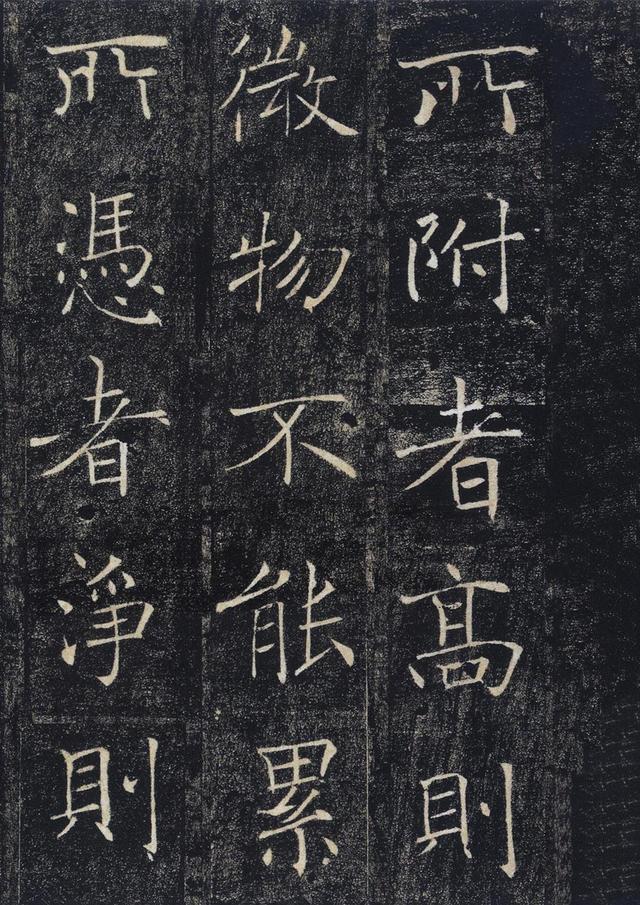 所附者高則
微物不能累
所憑者淨則